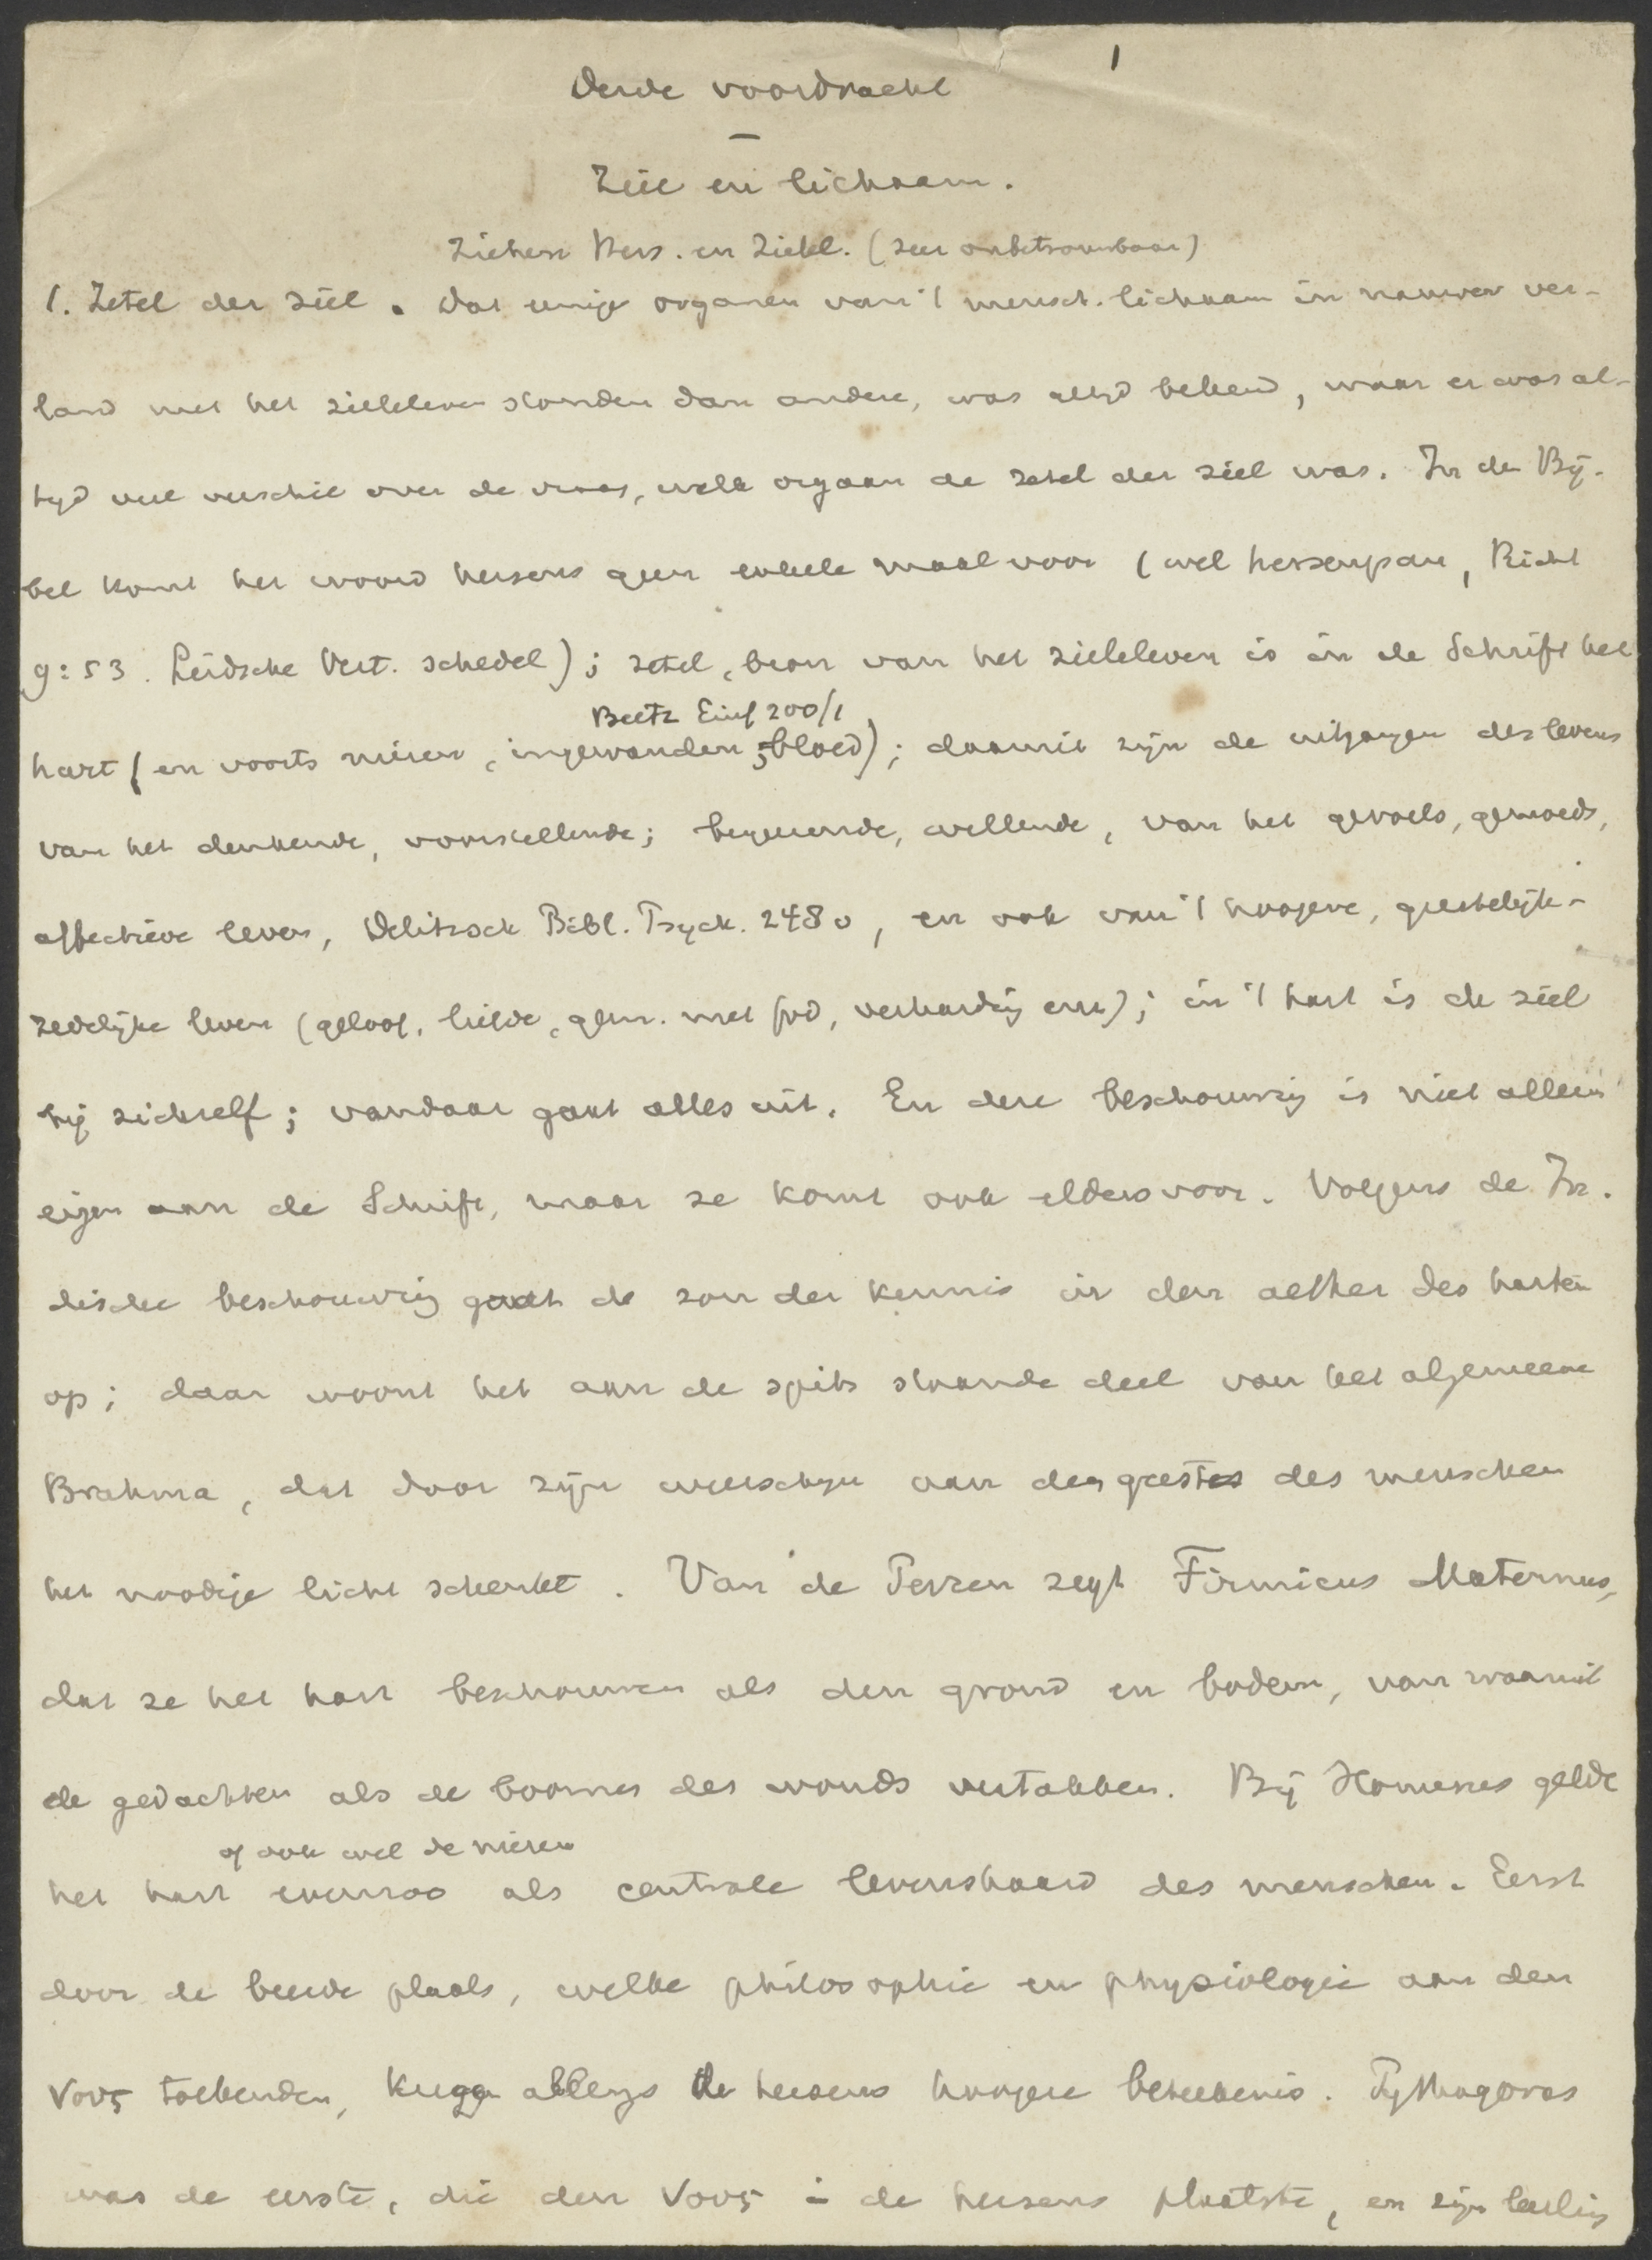 1
Derde voordracht
Ziel en lichaam.
Ziehen Hers. en Zielel. (zeer onbetrouwbaar)
1. Zetel der ziel. Dat eenige organen van 't mensch. lichaam in nauwer ver-
band met het zieleleven stonden dan andere, was altijd bekend, maar er was al-
tijd veel verschil over de vraag, welk orgaan de zetel der ziel was. In de Bij-
bel komt het woord hersens geen enkele maal voor (wel hersenpan, Richt
9:53. Leidsche Vert. schedel); zetel, bron van het zieleleven is in de Schrift het
Beetz Einf 200/1
hart (en voorts nieren, ingewanden, bloed); daaruit zijn de uitgangen des levens
van het denkende, voorstellende; begeerende, willende, van het gevoels, gemoeds,
affectieve leven, Delitzsch Bibl. Psych. 248 v, en ook van 't hoogere, geestelijk-
zedelijke leven (geloof, liefde, gem. met God, verharding enz); in 't hart is de ziel
bij zichzelf; vandaar gaat alles uit. En deze beschouwing is niet alleen
eigen aan de Schrift, maar ze komt ook elders voor. Volgens de In-
dische beschouwing gaat de zon der kennis in den aether des harten
op; daar woont het aan de spits staande deel van het algemeene
Brahma, dat door zijn weerschijn aan den geest des menschen
het noodige licht schenkt. Van de Perzen zegt Firmicus Maternus,
dat ze het hart beschouwen als den grond en bodem, van waaruit
de gedachten als de boomen des wouds vertakken. Bij Homerus geldt
of ook wel de nieren
het hart evenzoo als centrale levenshaard des menschen. Eerst
door de breede plaats, welke philosophie en physiologie aan den
νους toekenden, kregen allengs de hersens hoogere beteekenis. Pythagoras
was de eerste, die den νους in de hersens plaatste, en zijn leerling